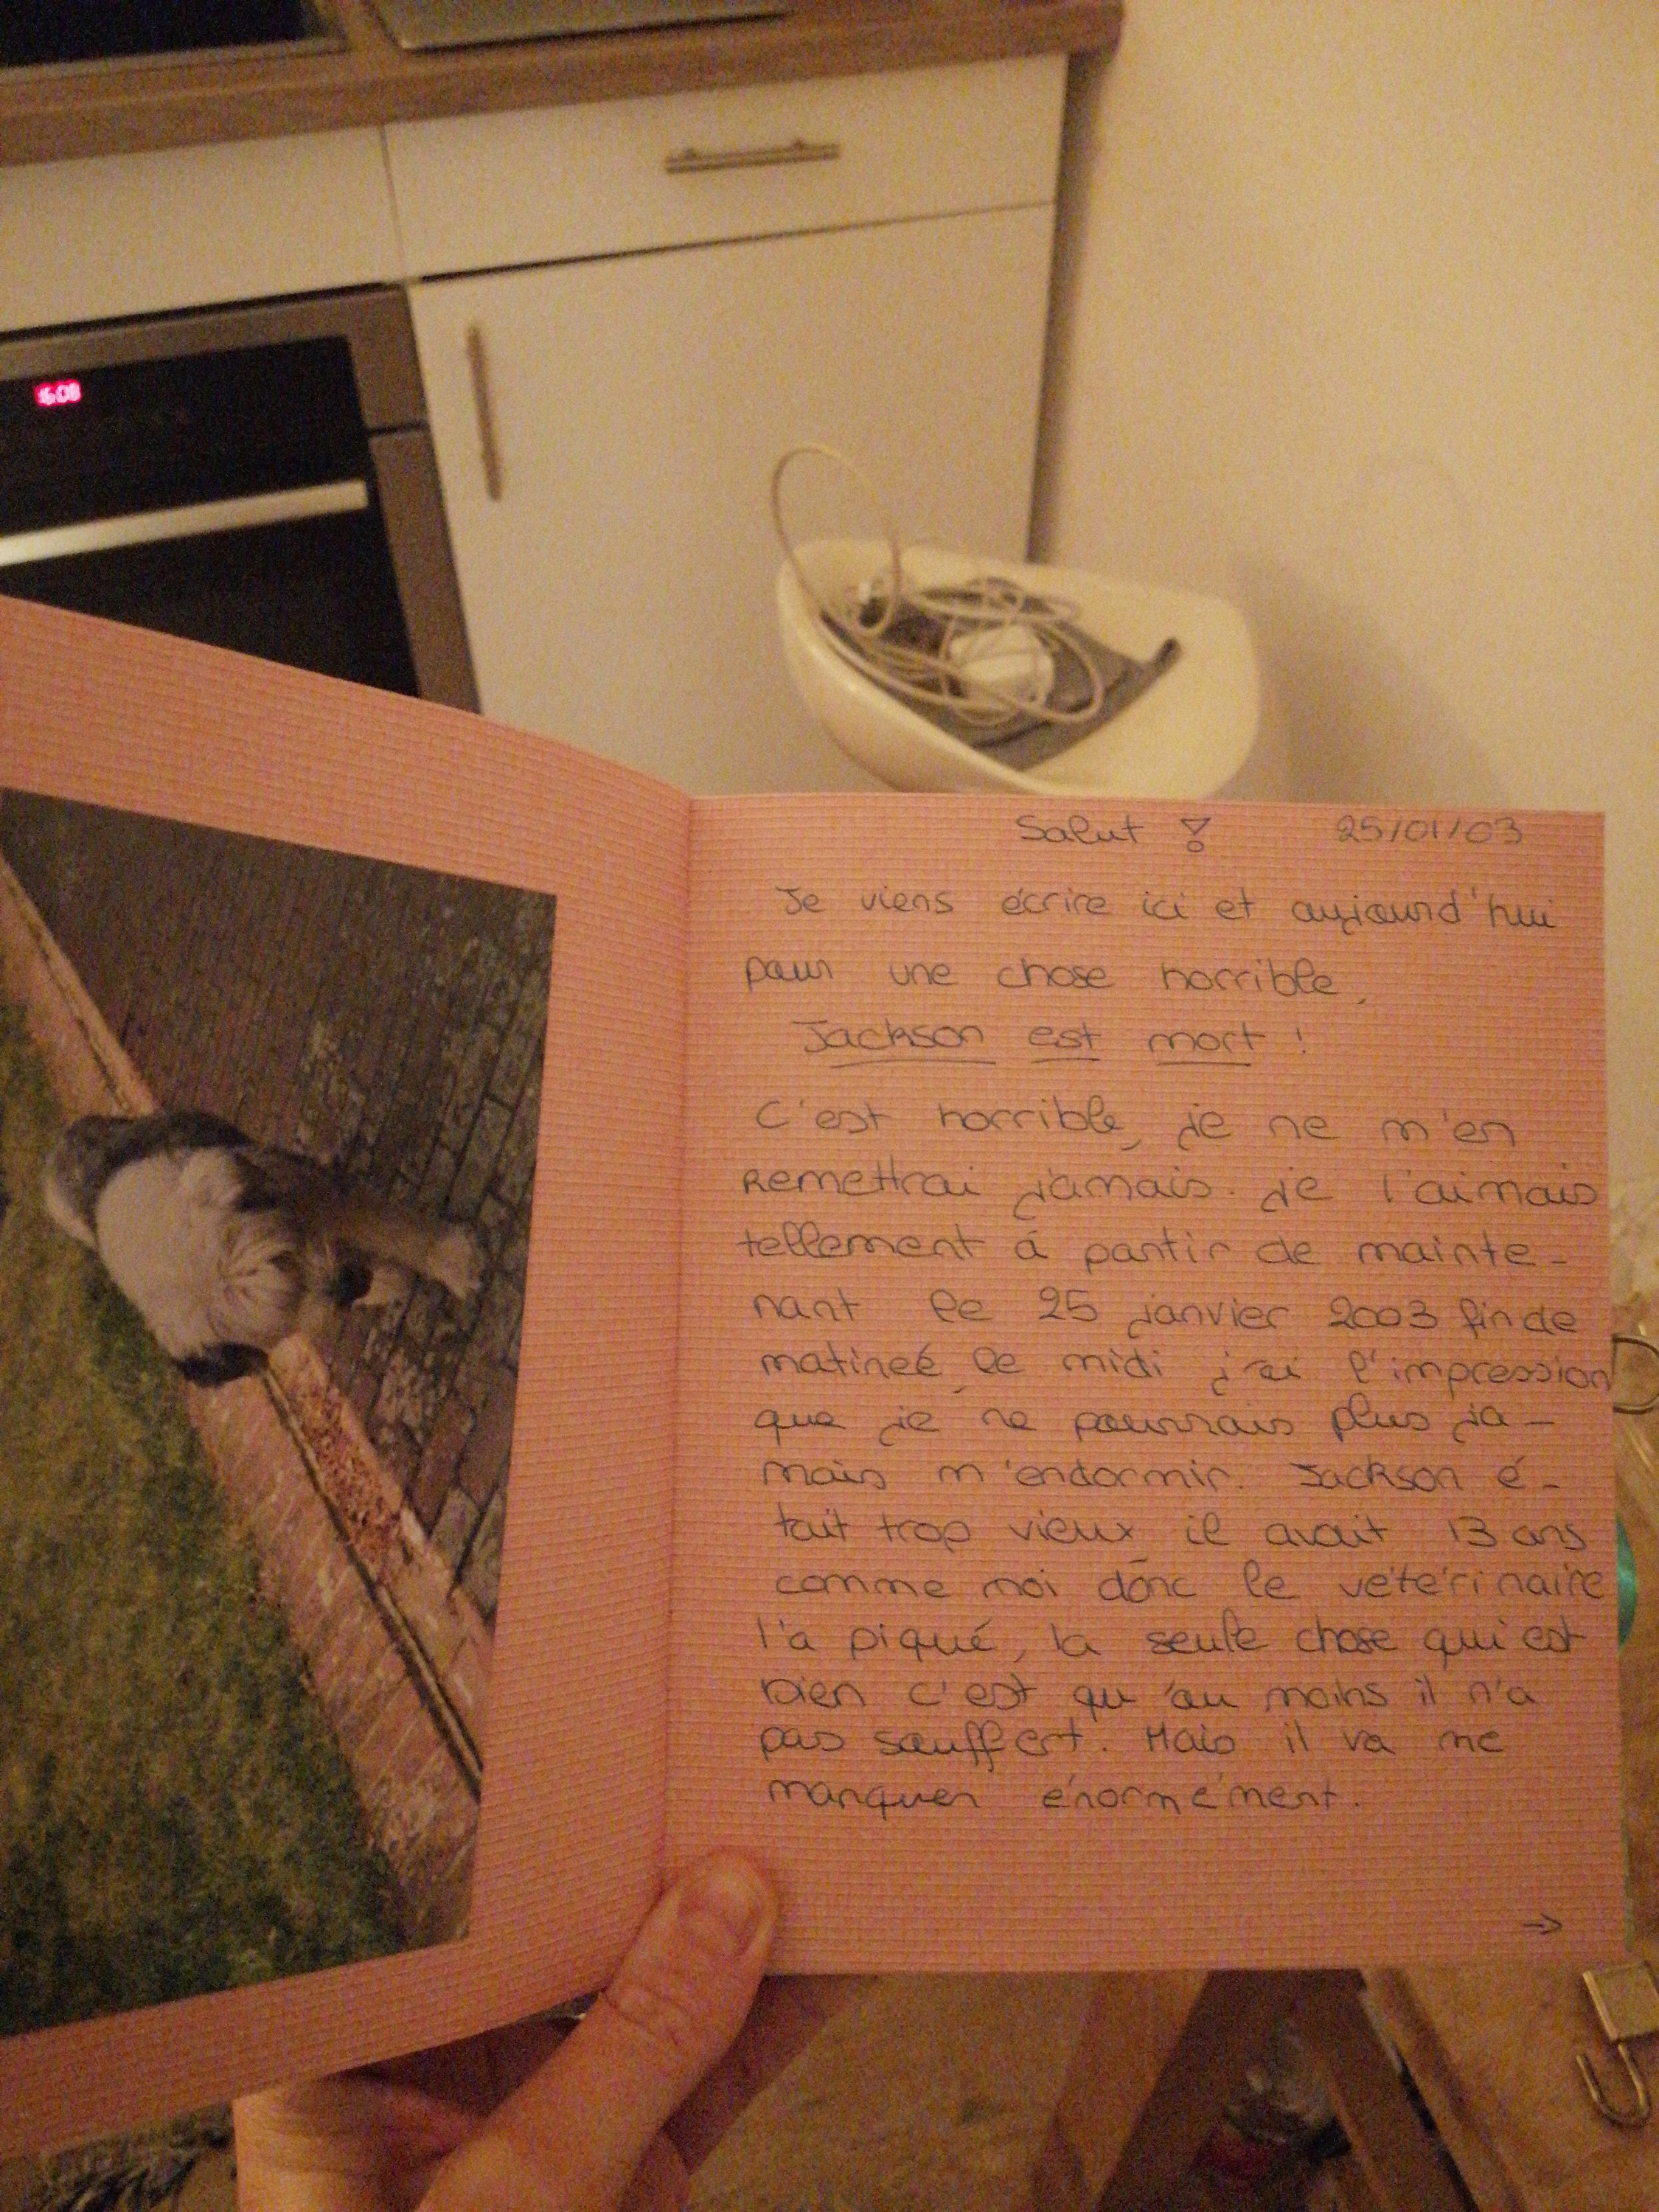 16:08
Salut ! 25/01/03
Je viens écrire ici et aujourd'hui
pour une chose horrible,
Jackson est mort !
C'est horrible, je ne m'en
Remettrai jamais. je l'aimais
tellement à partir de mainte-
nant le 25 janvier 2003 fin de
matineé, le midi j'ai l'impression
que je ne pourrais plus ja-
mais m'endormir. Jackson é-
tait trop vieux il avait 13 ans
comme moi donc le vétérinaire
l'a piqué, la seule chose qui est
bien c'est qu'au moins il n'a
pas souffert. Mais il va me
manquer énormément.
→